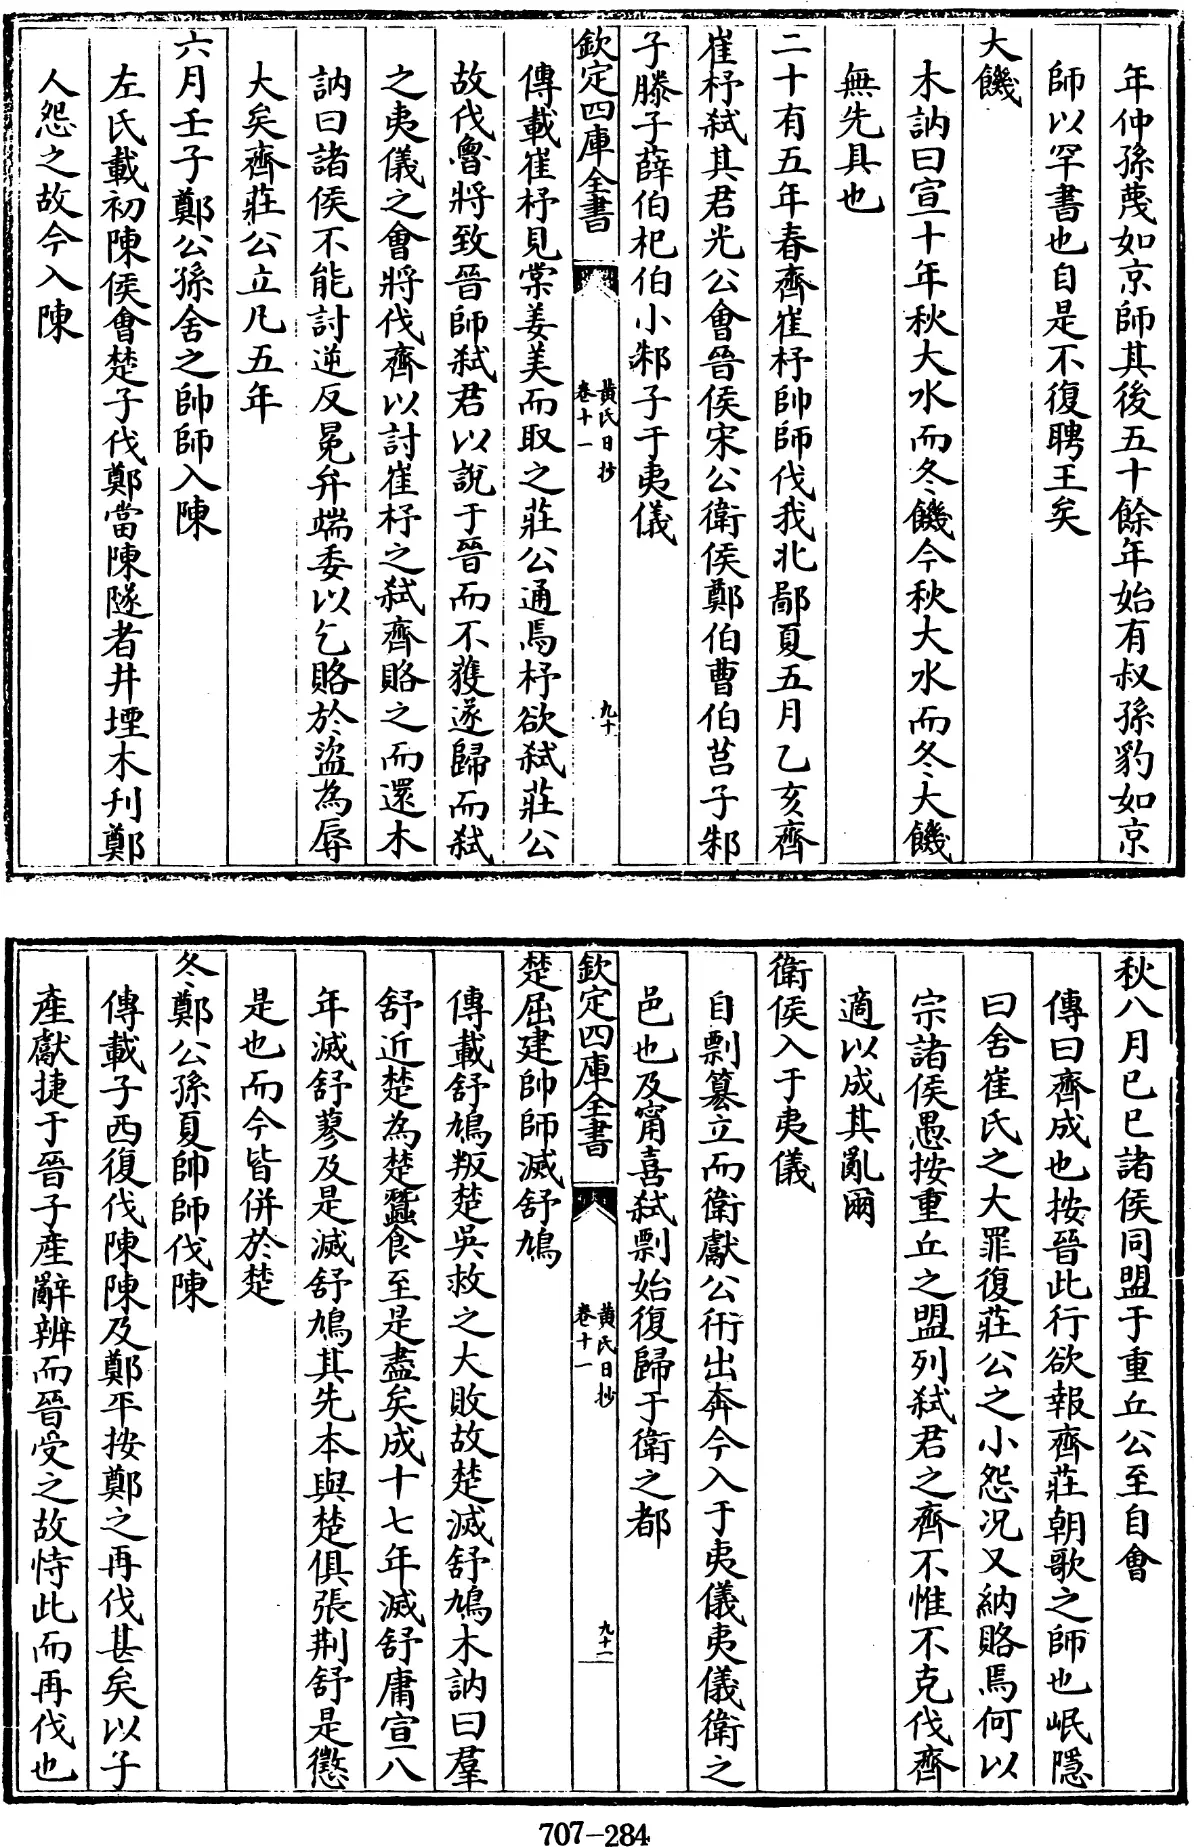 年仲孫蔑如京師其後五十餘年始有叔孫豹如京
師以罕書也自是不復聘王矣
大饑
木訥曰宣十年秋大水而冬饑今秋大水而冬大饑
無先具也
二十有五年春齊崔杼帥師伐我北鄙夏五月乙亥齊
崔杼弑其君光公會晉侯宋公衛侯鄭伯曹伯莒子邾
子滕子薛伯杞伯小邾子于夷儀
欽定四庫全書
黃氏日抄
卷十一
九十
傳載崔杼見棠姜美而取之莊公通焉杼欲弑莊公
故伐魯將致晉師弑君以說于晉而不獲遂歸而弑
之夷儀之會將伐齊以討崔杼之弑齊賂之而還木
訥曰諸侯不能討逆反冕弁端委以乞賂於盜為辱
大矣齊莊公立凡五年
六月壬子鄭公孫舍之帥師入陳
左氏載初陳侯會楚子伐鄭當陳隧者井堙木刋鄭
人怨之故今入陳
秋八月己巳諸侯同盟于重丘公至自會
傳曰齊成也按晉此行欲報齊莊朝歌之師也岷隱
曰舍崔氏之大罪復莊公之小怨況又納賂焉何以
宗諸侯愚按重丘之盟列弑君之齊不惟不克伐齊
適以成其亂爾
衛侯入于夷儀
自剽簒立而衛獻公衎出奔今入于夷儀夷儀衛之
邑也及甯喜弑剽始復歸于衛之都
欽定四庫全書
黃氏日抄
卷十一
九十一
楚屈建帥師滅舒鳩
傳載舒鳩叛楚吳救之大敗故楚滅舒鳩木訥曰羣
舒近楚為楚蠶食至是盡矣成十七年滅舒庸宣八
年滅舒蓼及是滅舒鳩其先本與楚俱張荆舒是懲
是也而今皆併於楚
冬鄭公孫夏帥師伐陳
傳載子西復伐陳陳及鄭平按鄭之再伐甚矣以子
產獻捷于晉子產辭辨而晉受之故恃此而再伐也
707-284